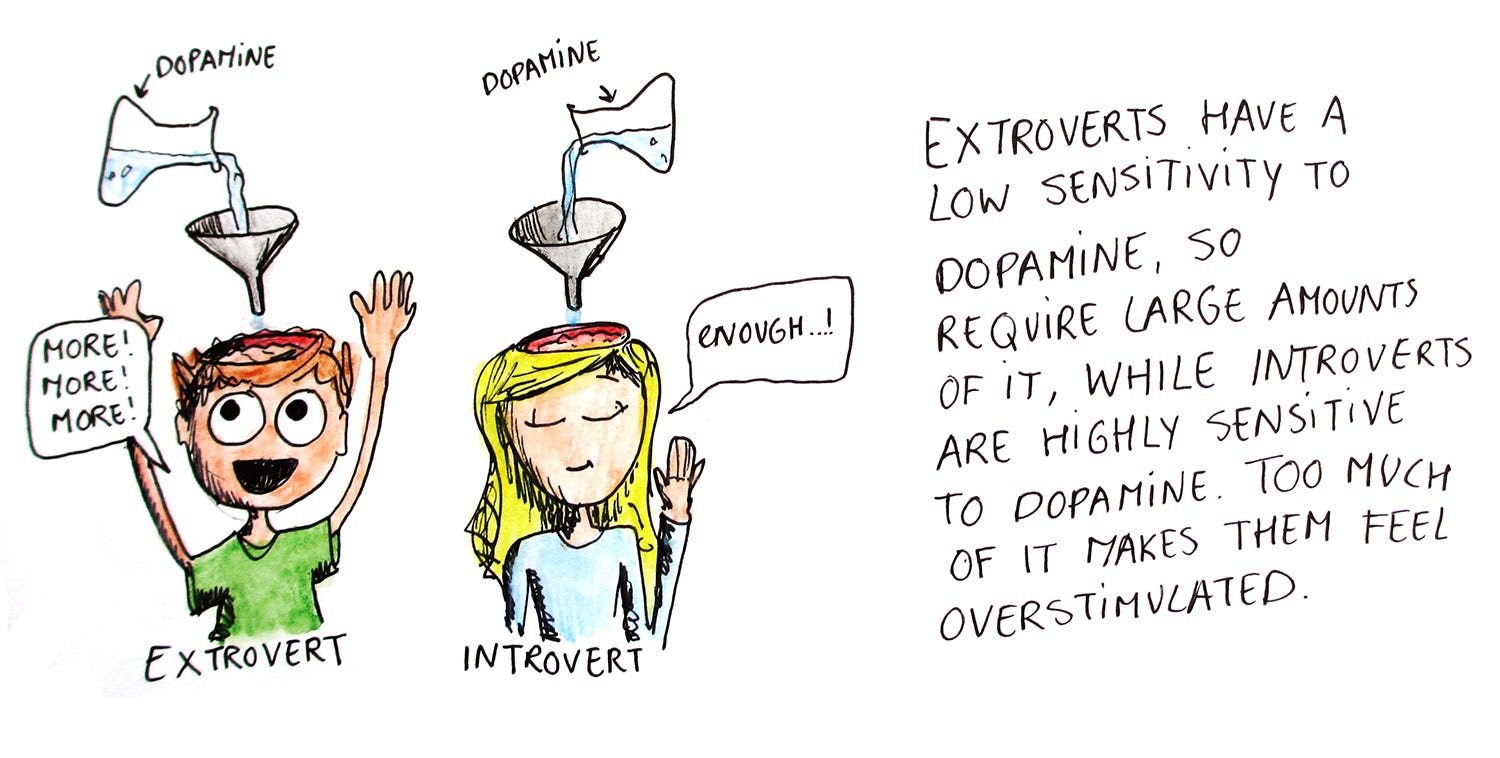 DOPAMINE
MORE!
MORE!
MORE!
EXTROVERT
DOPAMINE
ENOUGH...!
INTROVERT
EXTROVERTS HAVE A
LOW SENSITIVITY TO
DOPAMINE, SO
REQUIRE LARGE AMOUNTS
OF IT, WHILE INTROVERTS
ARE HIGHLY SENSITIVE
TO DOPAMINE. TOO MUCH
OF IT MAKES THEM FEEL
OVERSTIMULATED.